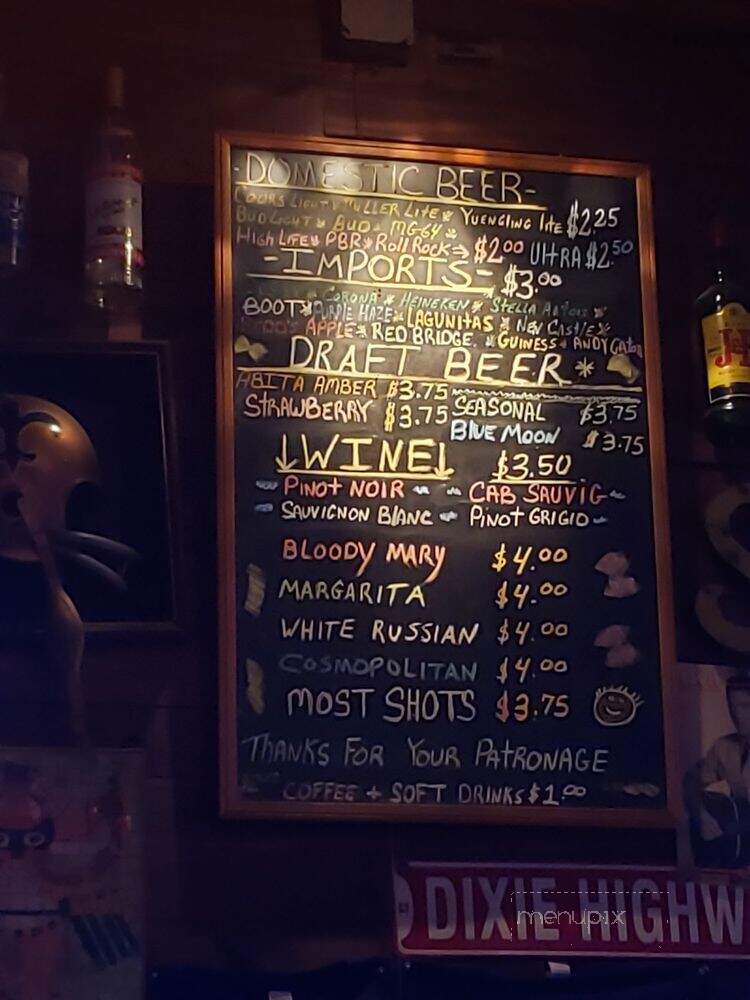 -DOMESTIC BEER-
COORS LIGHT * MILLER LITE * YUENGLING lite $2.25
BUD LIGHT * BUD * MG-64 *
HIGH LIFE * PBR * Roll Rock → $2.00 UltRA $2.50
-IMPORTS- $3.00
CORONA * HEINEKEN * STELLA ARTOIS *
BOOT * PURPLE HAZE * LAGUNITAS * NEW CAStlE *
APPLE * RED BRIDGE * GUINESS * ANDYGATOR
DRAFT BEER *
ABITA AMBER $3.75
STRAWBERRY $3.75 SEASONAL $3.75
BLUE MOON $3.75
↓WINE↓ $3.50
~ PINOT NOIR ~ ~ CAB SAUVIG ~
~ SAUVIGNON BLANC ~ PINOT GRIGIO ~
BLOODY MARY $4.00
MARGARITA $4.00
WHITE RUSSIAN $4.00
COSMOPOLITAN $4.00
MOST SHOTS $3.75
THANKS FOR YOUR PATRONAGE
COFFEE + SOFT DRINKS $1.00
J&B
DIXIE HIGHW
menupix